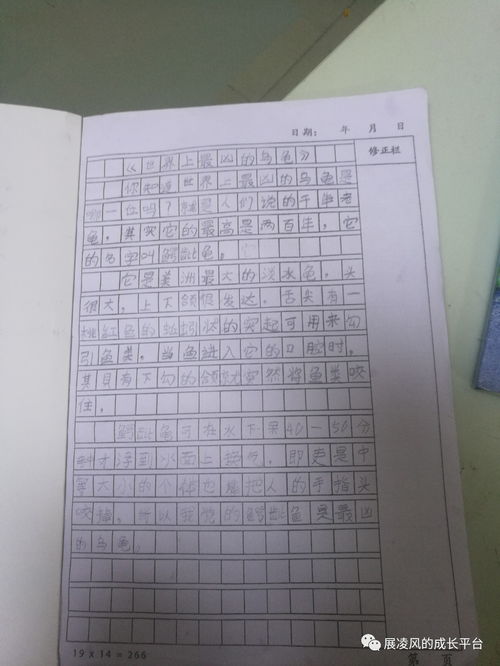 日期： 年 月 日
修正栏
《世界上最凶的乌龟》
你知道世界上最凶的乌龟是
哪一位吗？就是人们说的千年老
龟，其实它的最高是两百年，它
的名字叫鳄龟。它
它是美洲最大的淡水龟，头
很大，上下颌很发达，舌尖有一
桃红色的蚯蚓状的突起可用来勾
引鱼类，当鱼进入它的口腔时，
其具有下勾的颌就突然将鱼类咬
住。
鳄龟可在水下呆40一50分
钟才浮到水面上换气，即更是中
等大小的个体也能把人的手指头
咬掉。所以我觉的鳄龟是最凶
的乌龟。
19 x 14 = 266
第 页
展凌风的成长平台